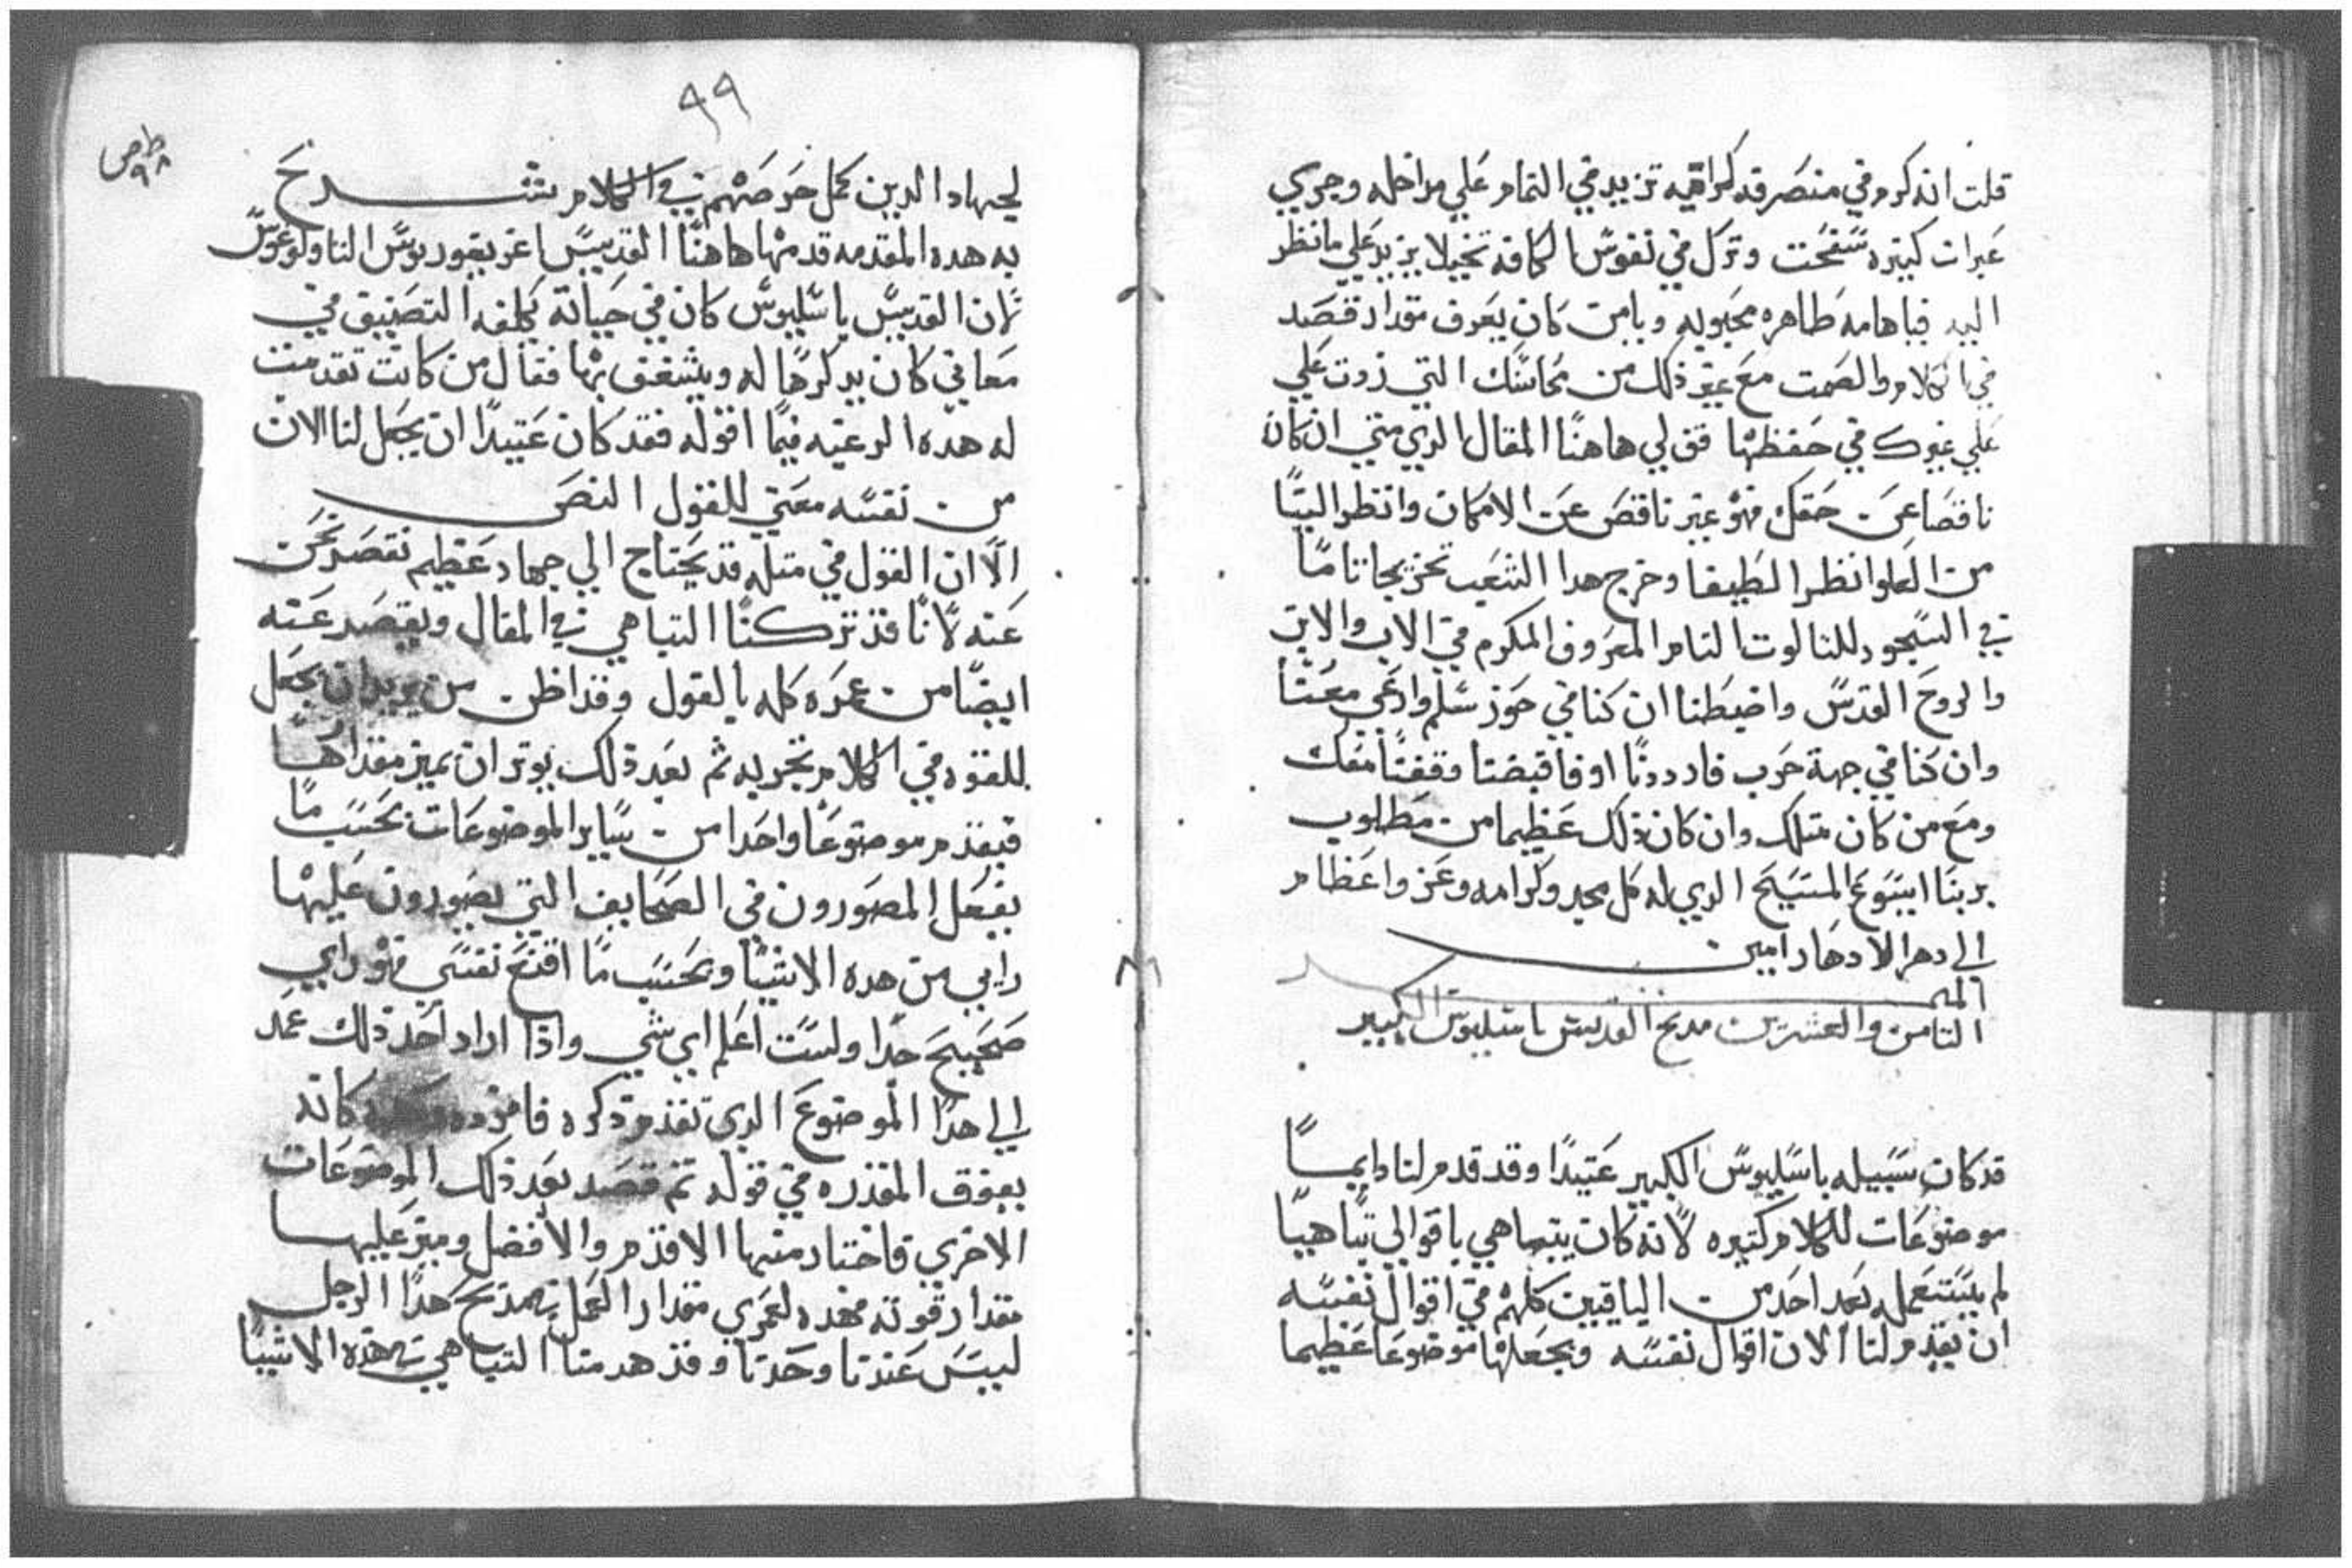 قلت انذكرم في منصرفه كراهيه تزيد في التمام علي مراحله وجري
عبرات كتيره سفحت وترك في نفوس الكافه تخيلا يزيد علي ما نظر
اليه فياهامه طاهره محبوبه ويامن كان يعرف مقدار قصد
في الكلام والصمت مع غير ذلك من محاسنك التي زدت علي
علي غيرك في حفظها فق لي هاهنا المقال الدي مني ان كان
ناقصا عن حقك فهو غير ناقص عن الامكان وانظر الينا
من العلو انظرا لطيفا وخرج هدا الشعب تخريجا تاما
في السجود للتالوت التام المعروف المكرم في الاب والابن
والروح القدس واضبطنا ان كنا في حوز سلم وادعي معنا
وان كنا في جهة حرب فارددنا او فاقبضنا وقفنا معك
ومع من كان متلك وان كان ذلك عظيما من مطلوب
بربنا ايسوع المسيح الدي له كل مجد وكرامه وعز واعظام
الي دهر الادهار امين
الميمر
التامن والعشرين مديح القديس باسيليوس الكبير
قد كان سبيله باسيليوس الكبير عتيدا وقد قدم لنا دايما
موضوعات للكلام كتيره لانه كان يتباهي باقوالي تباهيا
لم يستعمله بعد احد من الباقين كلهم في اقوال نفسه
ان يقدم لنا الان اقوال نفسه ويجعلها موضوعا عظيما
٩٩
لجهاد الدين كمل حرصهم في الكلام بشرح
به هده المقدمه قدمها هاهنا القديس اغريغوريوس التاولوغوس
لان القديس باسيليوس كان في حياته يكلفه التصنيف في
معاني كان يدكرها له ويشغف بها فقال من كانت تقدمت
له هده الرعيه فيما اقوله فقد كان عتيدا ان يجعل لنا الان
من نفسه معني للقول النص
الا ان القول في متله قد يحتاج الي جهاد عظيم نقصر نحن
عنه لانا قد تركنا التباهي في المقال ويقصر عنه
ايضا من عمره كله بالقول وقد اظن من يريد ان يجعل
للقوه في الكلام تجربه ثم بعد ذلك يوتر ان يميز مقدارها
فيقدم موضوعا واحدا من ساير الموضوعات بحسب ما
يفعل المصورون في الصحايف التي يصورون عليها
رايي من هده الاشيا وبحسب ما اقنع نفسي فهو راي
صحيح جدا ولست اعلم اي شي واذا اراد احد ذلك عمد
الي هدا الموضوع الدي تقدم ذكره كانه
يفوق المقدره في قوله تم قصد بعد ذلك الموضوعات
الاخري فاختار منها الاقدم والافضل وميز عليها
مقدار قوته فهده لعمري مقدار العمل في مديح هدا الرجل
ليس عندنا وحدنا وقد هدمنا التباهي في هده الاشيا